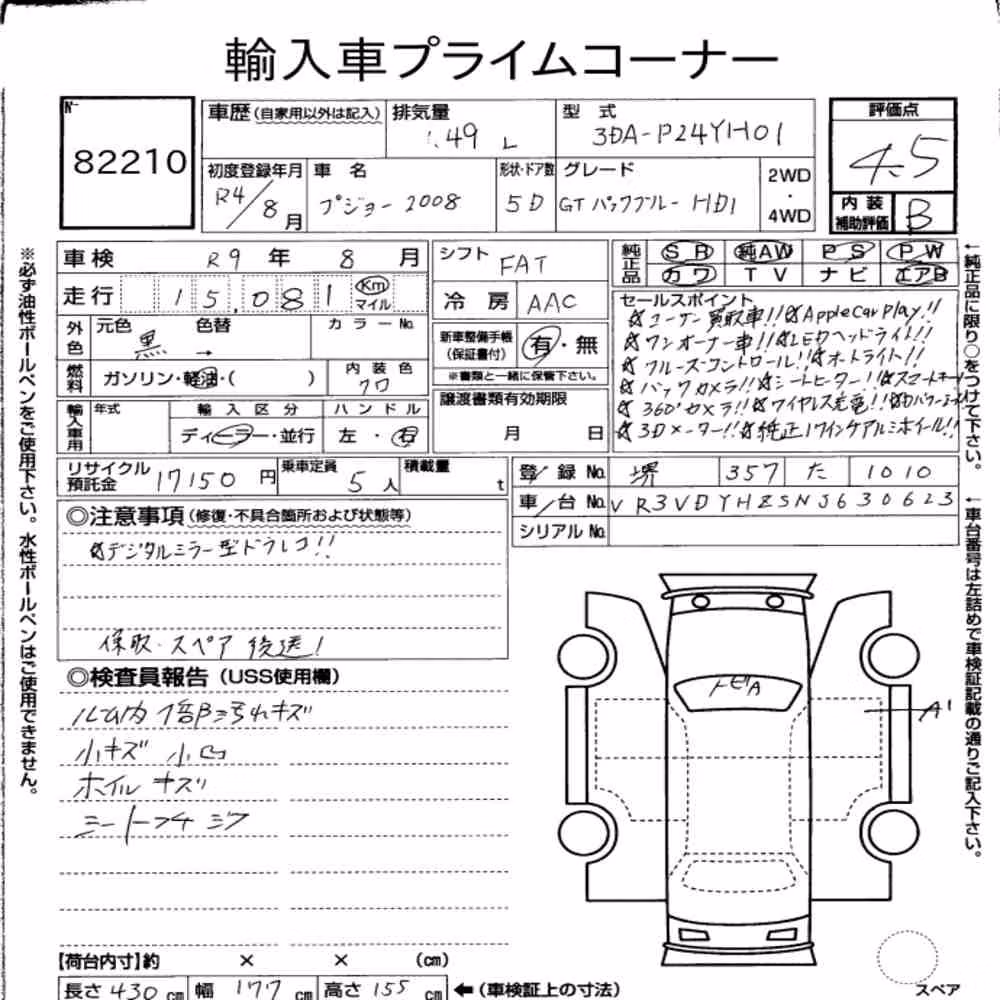 輸入車プライムコーナー
No
82210
車歴(自家用以外は記入) 排気量 1.49 L 型式 3DA-P24YH01
評価点 4.5
初度登録年月 R4/8月 車名 プジョー2008 形状・ドア数 5D グレード GTパックブルーHDI 2WD・4WD
内装補助評価 B
車検 R9年 8月 シフト FAT
純正品 SR 純AW PS PW
カワ TV ナビ エアB
走行 15,081 Km マイル
冷房 AAC
外色 元色 黒 色替 → カラーNo.
新車整備手帳(保証書付) 有・無
※書類と一緒に保管下さい。
燃料 ガソリン・軽油・( ) 内装色 クロ
譲渡書類有効期限
月 日
輸入車用 年式 輸入区分 ディーラー・並行 ハンドル 左・右
セールスポイント
☆ユーザー買取車!!☆AppleCarPlay!!
☆ワンオーナー車!!☆LEDヘッドライト!!
☆クルーズコントロール!!☆オートライト!!
☆バックカメラ!!☆シートヒーター!!☆スマートキー
☆360°カメラ!!☆ワイヤレス充電!!
☆3Dメーター!!☆純正17インチアルミホイル!!
リサイクル預託金 17150円 乗車定員 5人 積載量 t
登録No. 堺 357 た 1010
車台No. VR3VDYHZSNJ630623
シリアルNo.
◎注意事項(修復・不具合箇所および状態等)
☆デジタルミラー型ドラレコ!!
保取・スペア後送!
◎検査員報告(USS使用欄)
ルーム内 1部汚れキズ
小キズ 小凹
ホイルキズ
シートフチジワ
トビA
A1
【荷台内寸】約 × × (cm)
長さ 430 cm 幅 177 cm 高さ 155 cm ←(車検証上の寸法)
スペア
※必ず油性ボールペンをご使用下さい。水性ボールペンはご使用できません。
←純正品に限り○をつけて下さい。
←車台番号は左詰めで車検証記載の通りご記入下さい。